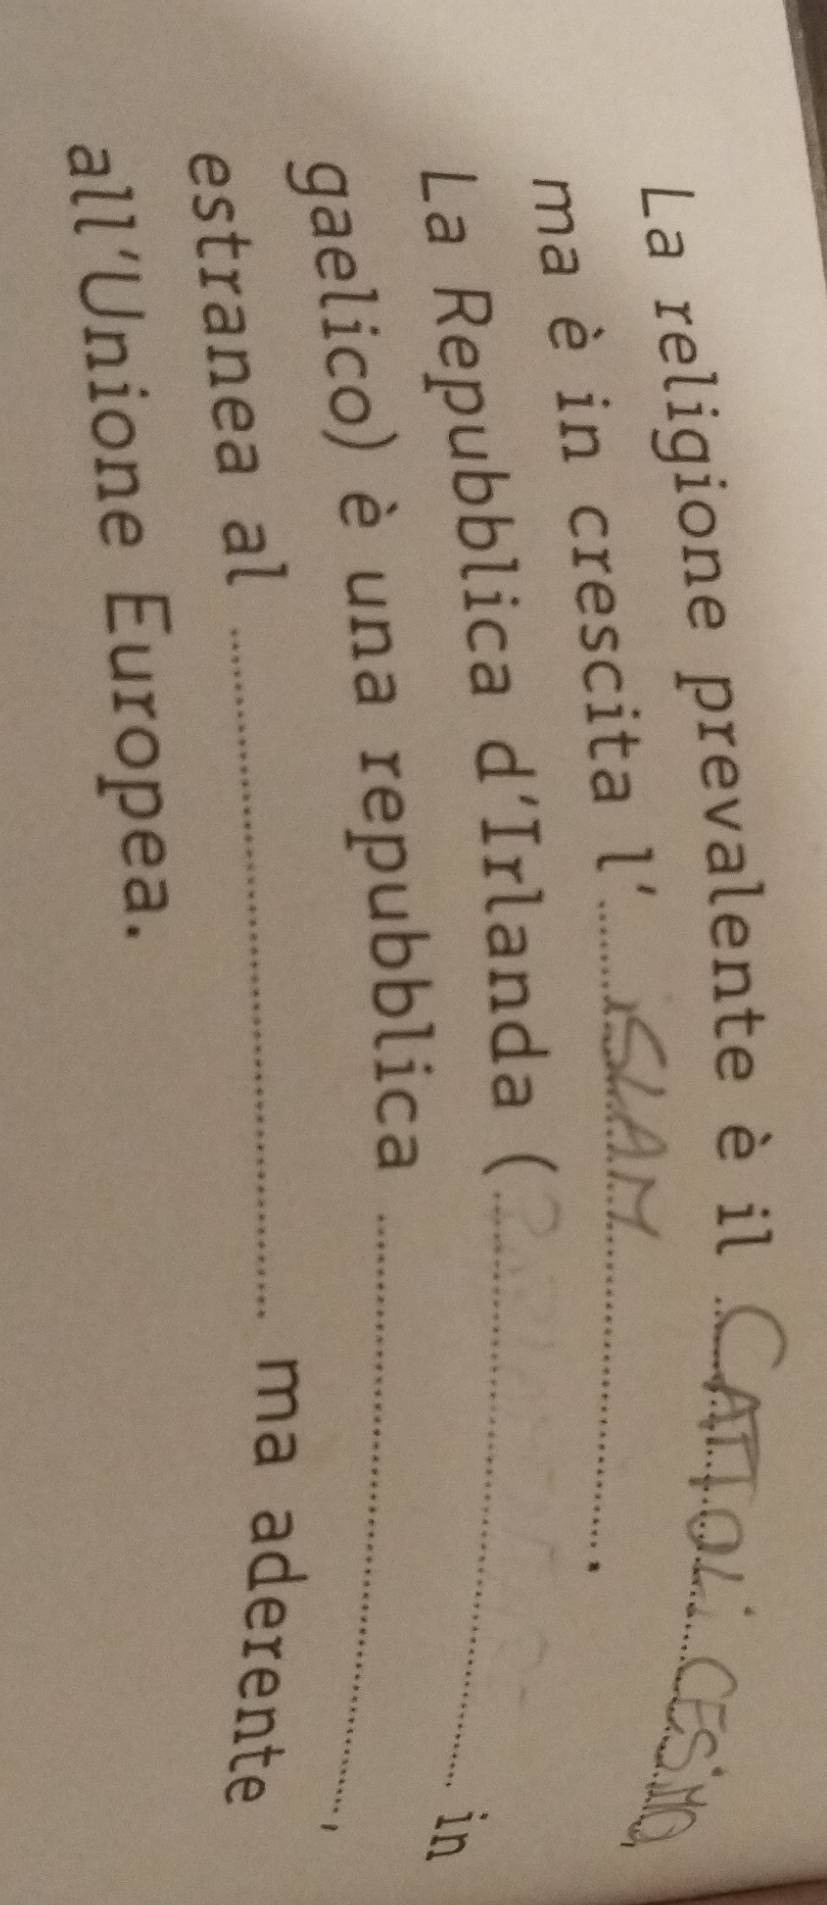 La religione prevalente è il CATTOLiCESiMO,
ma è in crescita l'iSLAM.
La Repubblica d'Irlanda ( in
gaelico) è una repubblica ,
estranea al ma aderente
all'Unione Europea.